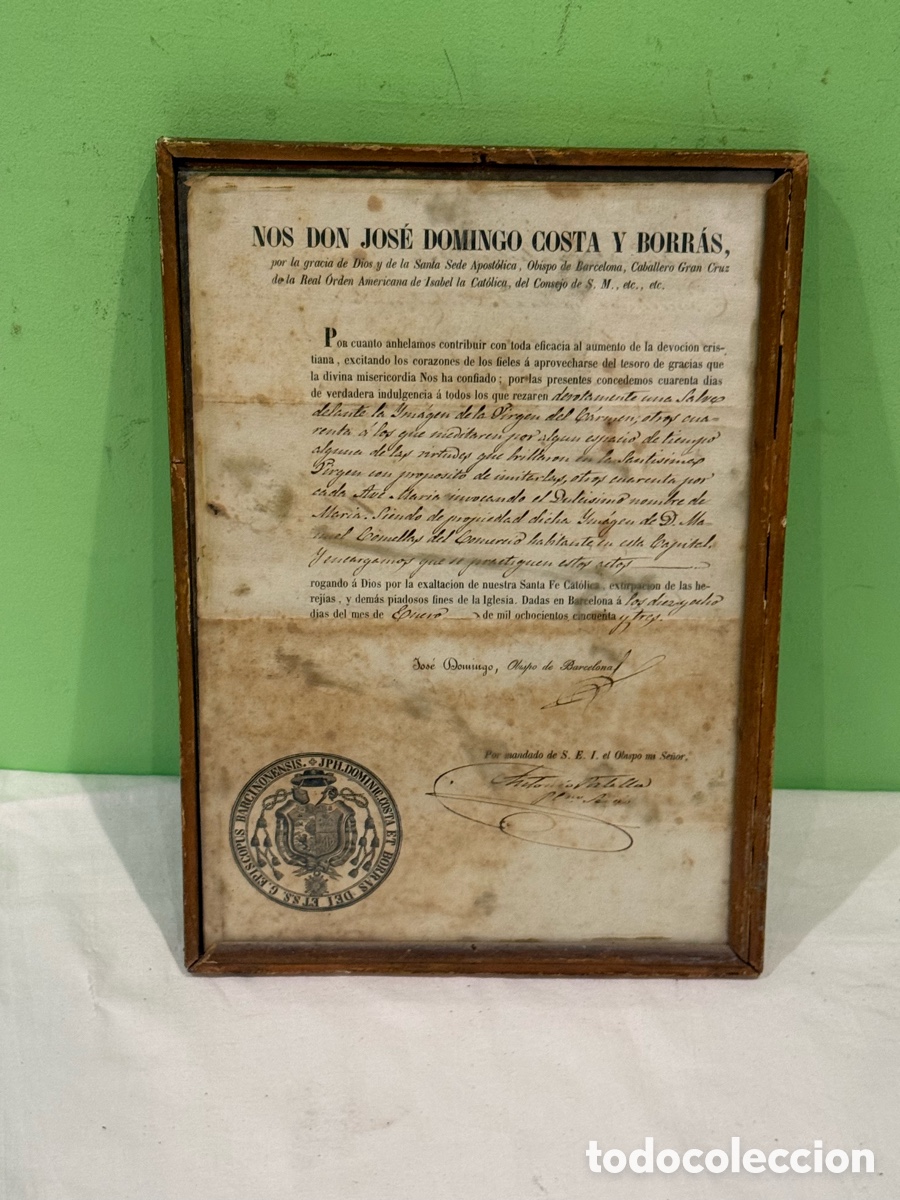 NOS DON JOSÉ DOMINGO COSTA Y BORRÁS,
por la gracia de Dios y de la Santa Sede Apostólica, Obispo de Barcelona, Caballero Gran Cruz
de la Real Órden Americana de Isabel la Católica, del Consejo de S. M., etc., etc.
Por cuanto anhelamos contribuir con toda eficacia al aumento de la devocion cris-
tiana, excitando los corazones de los fieles á aprovecharse del tesoro de gracias que
la divina misericordia Nos ha confiado; por las presentes concedemos cuarenta dias
de verdadera indulgencia á todos los que rezaren devotamente una Salve
delante la Ymágen de la Vírgen del Cármen, otros cua-
renta á los que meditaren por algun espacio de tiempo
alguna de las virtudes que brillaron en la Santísima
Vírgen con proposito de imitarlas, otros cuarenta por
cada Ave Maria invocando el Dulcisimo nombre de
Maria. Siendo de propiedad dicha Ymágen de D. Ma-
nuel Comellas del Comercio habitante en esta Capital.
Y encargamos que se practiquen estos actos
rogando á Dios por la exaltacion de nuestra Santa Fe Católica, extirpacion de las he-
rejías, y demás piadosos fines de la Iglesia. Dadas en Barcelona á los diez y ocho
dias del mes de Enero de mil ochocientos cincuenta y tres.
José Domingo, Obispo de Barcelona
Por mandado de S. E. I. el Obispo mi Señor,
Antonio
JPH. DOMINIC. COSTA ET BORRAS DEI ET S.S. G. EPISCOPUS BARCINONENSIS.
todocoleccion